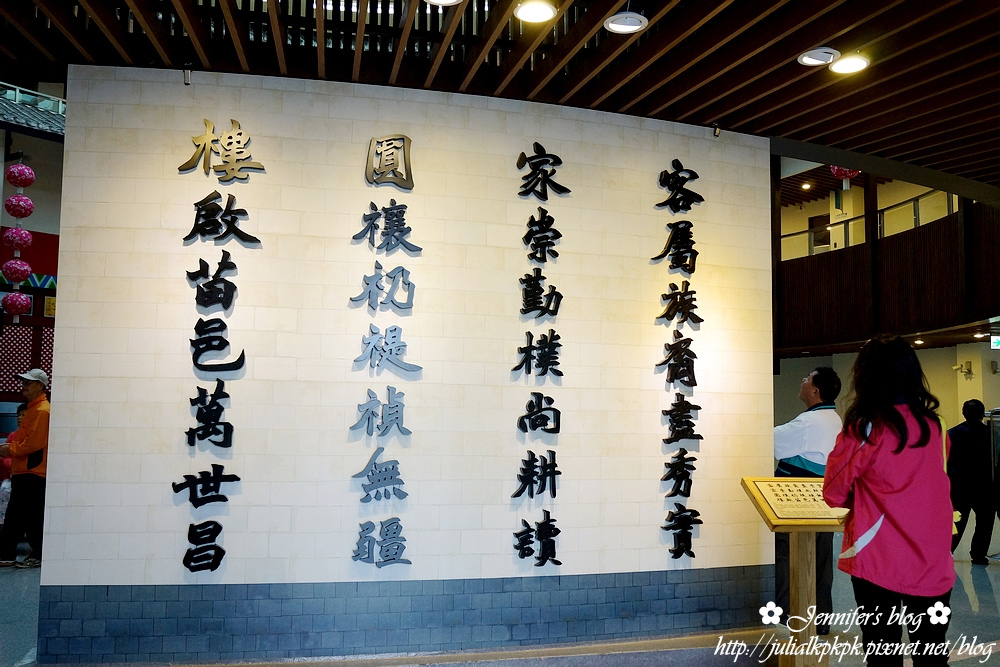 客屬族裔盡秀實
家崇勤樸尚耕讀
圓穰礽禔禎無疆
樓啟苗邑萬世昌
Jennifer's blog
http://julialkpkpk.pixnet.net/blog